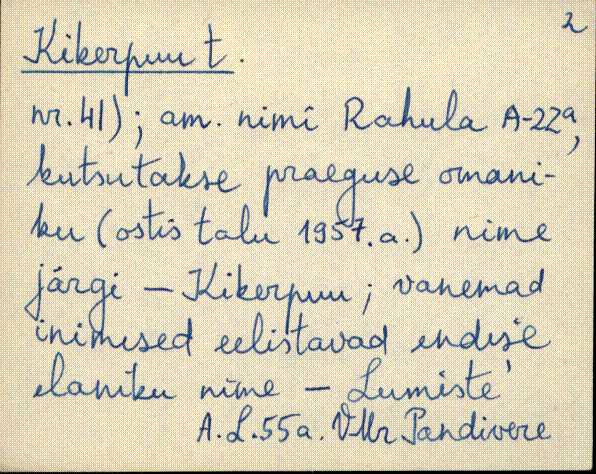 2
Kikerpuu t.
nr. 41); am. nimi Rahula A-22a,
kutsutakse praeguse omani-
ku (ostis talu 1957. a.) nime
järgi — Kikerpuu; vanemad
inimesed eelistavad endise
elaniku nime — Lumiste
A. L. 55 a. VMr Pandivere